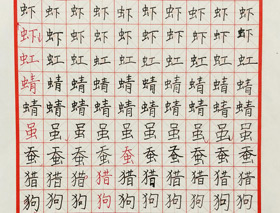 虾虾虾虾虾虾虾虾虾虾
虾虾虾虾虾虾虾虾虾虾
虹虹虹虹虹虹虹虹虹虹
蜻蜻蜻蜻蜻蜻蜻蜻蜻蜻
蜻蜻蜻蜻蜻蜻蜻蜻蜻蜻
虽虽虽虽虽虽虽虽虽虽
蚕蚕蚕蚕蚕蚕蚕蚕蚕蚕
猎猎猎猎猎猎猎猎猎猎
狗狗狗狗狗狗狗狗狗狗